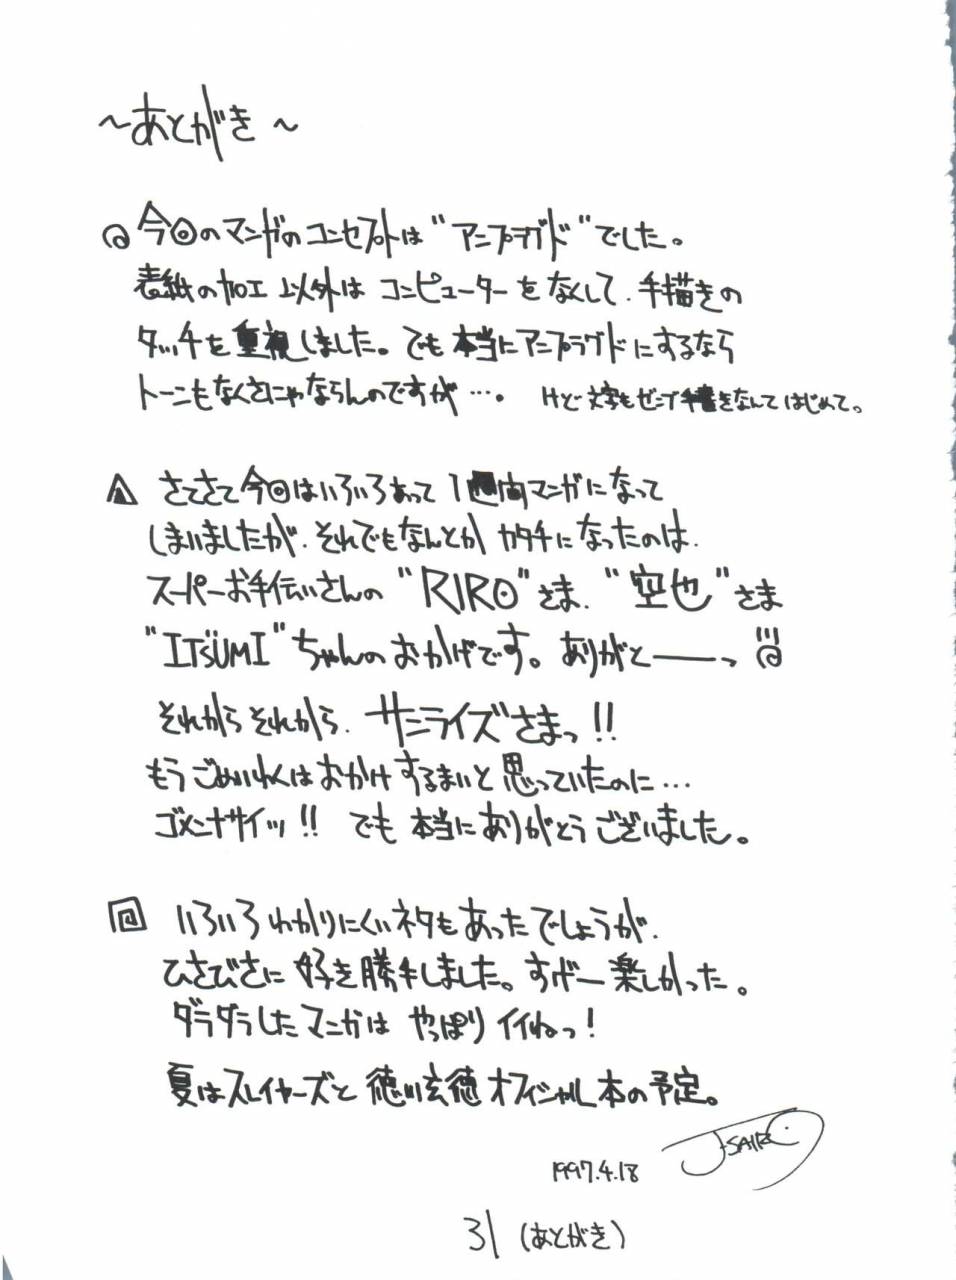 ～あとがき～
今回のマンガのコンセプトは“アンプラグド”でした。
表紙の加工以外はコンピューターをなくして、手描きの
タッチを重視しました。でも本当にアンプラグドにするなら
トーンもなくさにゃならんのですが…。 文字もゼンブ手書きなんてはじめて。
さてさて今回はいろいろあって1週間マンガになって
しまいましたが、それでもなんとかカタチになったのは、
スーパーお手伝いさんの“RIRO”さま、“空也”さま
“ITSUMI”ちゃんのおかげです。ありがとーーっ!!!
それからそれから、サンライズさまっ!!
もうごめいわくはおかけするまいと思っていたのに…
ゴメンナサイッ!! でも本当にありがとうございました。
いろいろわかりにくいネタもあったでしょうが、
ひさびさに好き勝手しました。すげー楽しかった。
ダラダラしたマンガはやっぱりイイねっ!
夏はスレイヤーズと徳川玄徳オフィシャル本の予定。
J-SAIRO
1997.4.18
31 (あとがき)